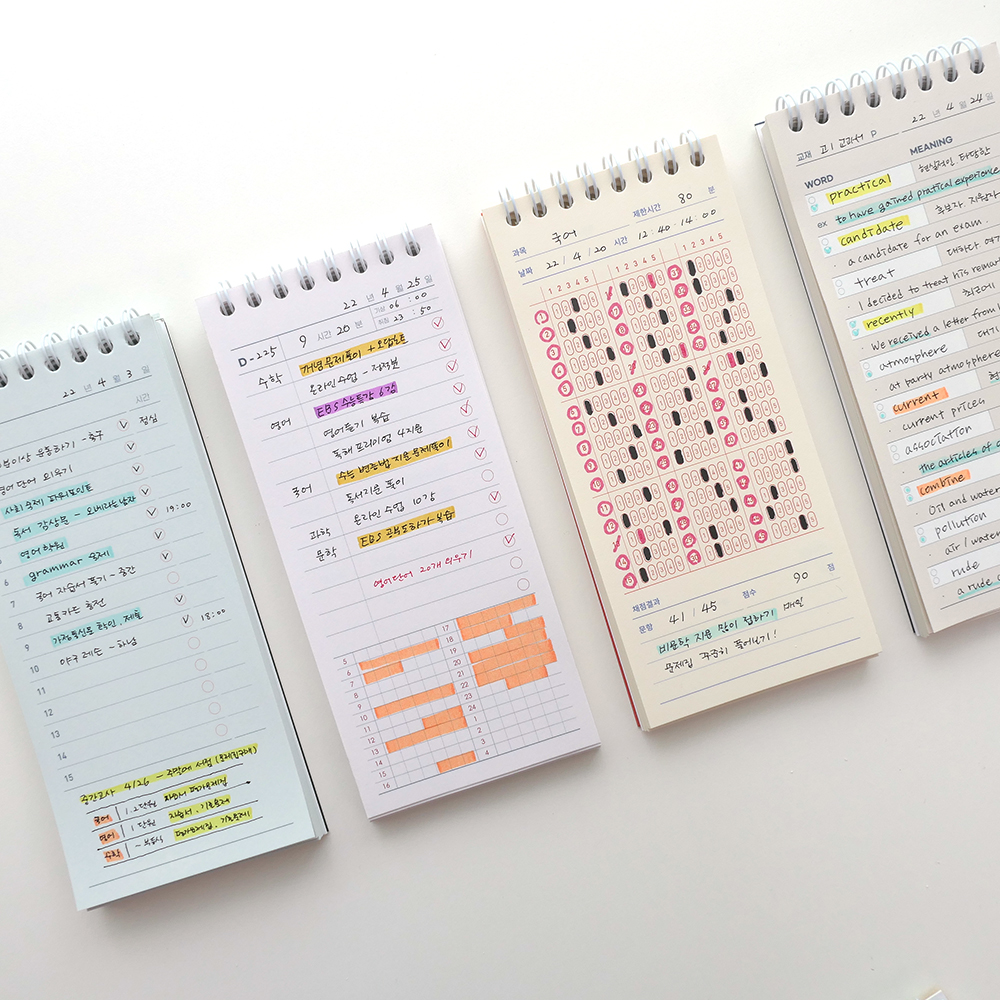 22 년 4 월 3 일
시간
점심
영어단어 외우기
사회 숙제 파워포인트
독서 감상문 - 오베라는 남자
영어학원
19:00
6 grammar 숙제
7 국어 자습서 풀기 - 중간
8 교통카드 충전
9 가정통신문 확인, 제출
18:00
10 야구 레슨 - 하남
11
12
13
14
15
중간고사 4/26 - 주말에 서점
국어 1, 2단원
영어 1 단원 자습서, 기출문제
수학
22 년 4 월 25 일
기상 06 : 00
D-225 9 시간 20 분
취침 23 : 50
수학 개념 문제풀이 + 오답노트
온라인 수업 - 정적분
EBS 수능특강 6강
영어 영어듣기 복습
독해 프리미엄 4지문
수능 변형법 지문 문제풀이
국어 독서지문 풀이
온라인 수업 10강
과학 EBS 공통통하기 복습
문학
영어단어 20개 외우기
5 17
6 18
7 19
8 20
9 21
10 22
11 23
12 24
13 1
14 2
15 3
16 4
과목 국어 제한시간 80 분
날짜 22 / 4 / 20 시간 12:40 - 14:00
1 2 3 4 5 1 2 3 4 5 1 2 3 4 5
채점결과
문항 41 / 45 점수 90 점
비문학 지문 많이 접하기 매일
문제집 꾸준히 풀어보기!
교재 고1 교과서 P 22 년 4 월 24 일
WORD MEANING
practical 현실적인 타당한
ex to have gained pratical experience
candidate 후보자 지원자
a candidate for an exam.
treat 대하다
I decided to treat his remar
recently 최근에
We received a letter from
atmosphere
at party atmosphere
current
current prices
association
the articles of
combine
Oil and water
pollution
air / water
rude
a rude